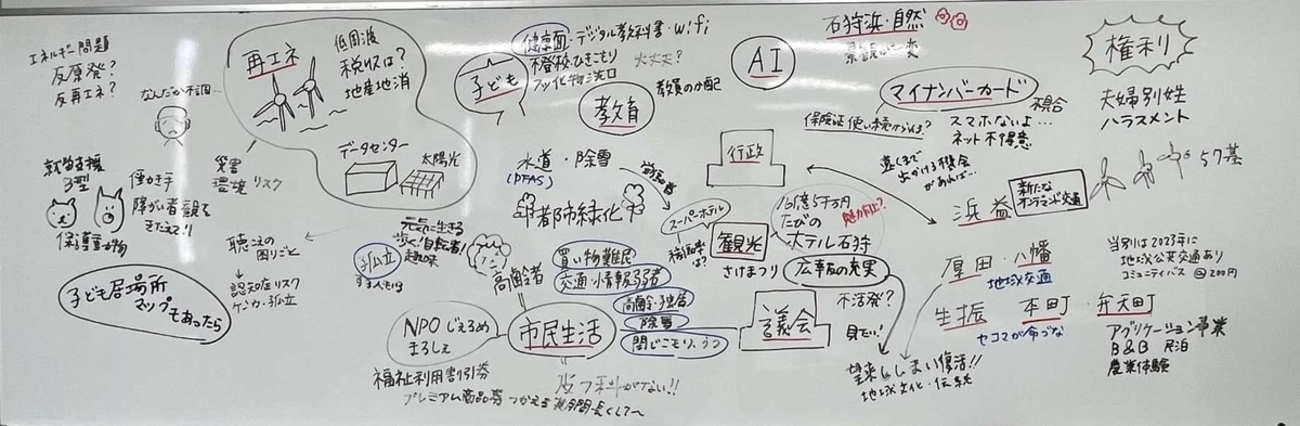 エネルギー問題
反原発?
反再エネ?
なんだか不調
再エネ
低周波
税収は?
地産地消
データセンター
太陽光
災害
環境 リスク
就労支援
B型
働き手
障がい者 観る
保護動物
聴こえの
困りごと
認知症リスク
ケンカ・孤立
子ども居場所
マップもあったら
子ども
健康面・デジタル教科書・wifi
不登校・ひきこもり
大丈夫?
フッ化物洗口
教育
教員の心配
AI
石狩浜・自然
水道・除雪
(PFAS)
都市緑化
行政
元気に生きる
歩く!自転車!
趣味
孤立
高齢者
買い物難民
交通・情報弱者
高齢・独居
除雪
閉じこもり、うつ
市民生活
NPO じぇるめ
まるしぇ
福祉利用割引券
プレミアム商品券 つかえる期間長くして〜
皮フ科がない!!
スーパーホテル
観光
さけまつり
1億5千万円
たびの
ホテル石狩
魅力向上?
広報の充実
議会
不活発?
見たい!
マイナンバーカード
保険証使い続けられる?
スマホないよ…
ネット不得意
遠くまで
出かける機会
があれば…
権利
夫婦別姓
ハラスメント
浜益
新たな
オンデマンド交通
57基
厚田・八幡
地域交通
生振 本町・弁天町
セコマが命づな
当別は2023年に
地域公共交通あり
コミュニティバス @200円
アプリケーション事業
B&B 民泊
農業体験
望来ししまい復活!!
地域文化・伝統